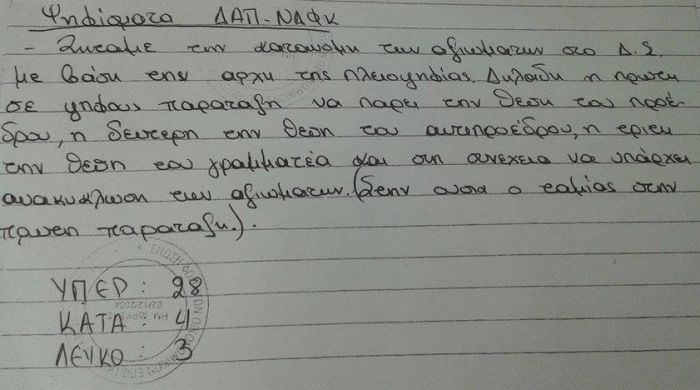 Ψηφίσματα ΔΑΠ-ΝΔΦΚ
- Ζητάμε την κατανομη των αξιωματων στο Δ.Σ.
με βάση την αρχη της πλειοψηφιας. Δηλαδη η πρωτη
σε ψηφους παραταξη να παρει την θεση του προέ-
δρου, η δευτερη την θεση του αντιπροέδρου, η τριτη
την θεση του γραμματέα και στη συνεχεια να υπάρχει
ανακυκλωση των αξιωματων. (Στην ουσια ο ταμίας στην
πρωτη παραταξη.).
ΥΠΕΡ: 28
ΚΑΤΑ: 4
ΛΕΥΚΟ: 3